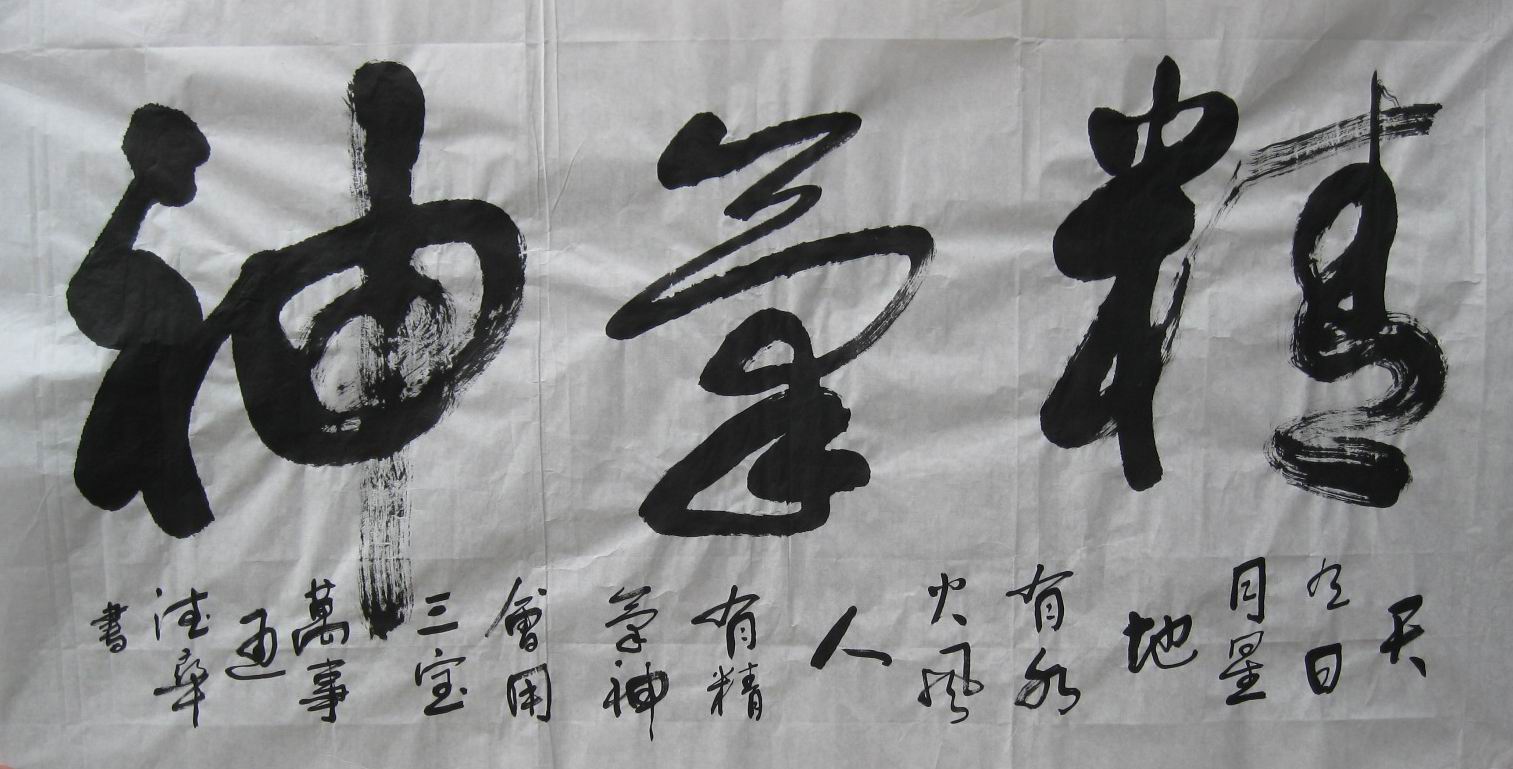 精氣神
天
有日
月星
地
有水
火風
人
有精
氣神
會用
三宝
萬事
通
書